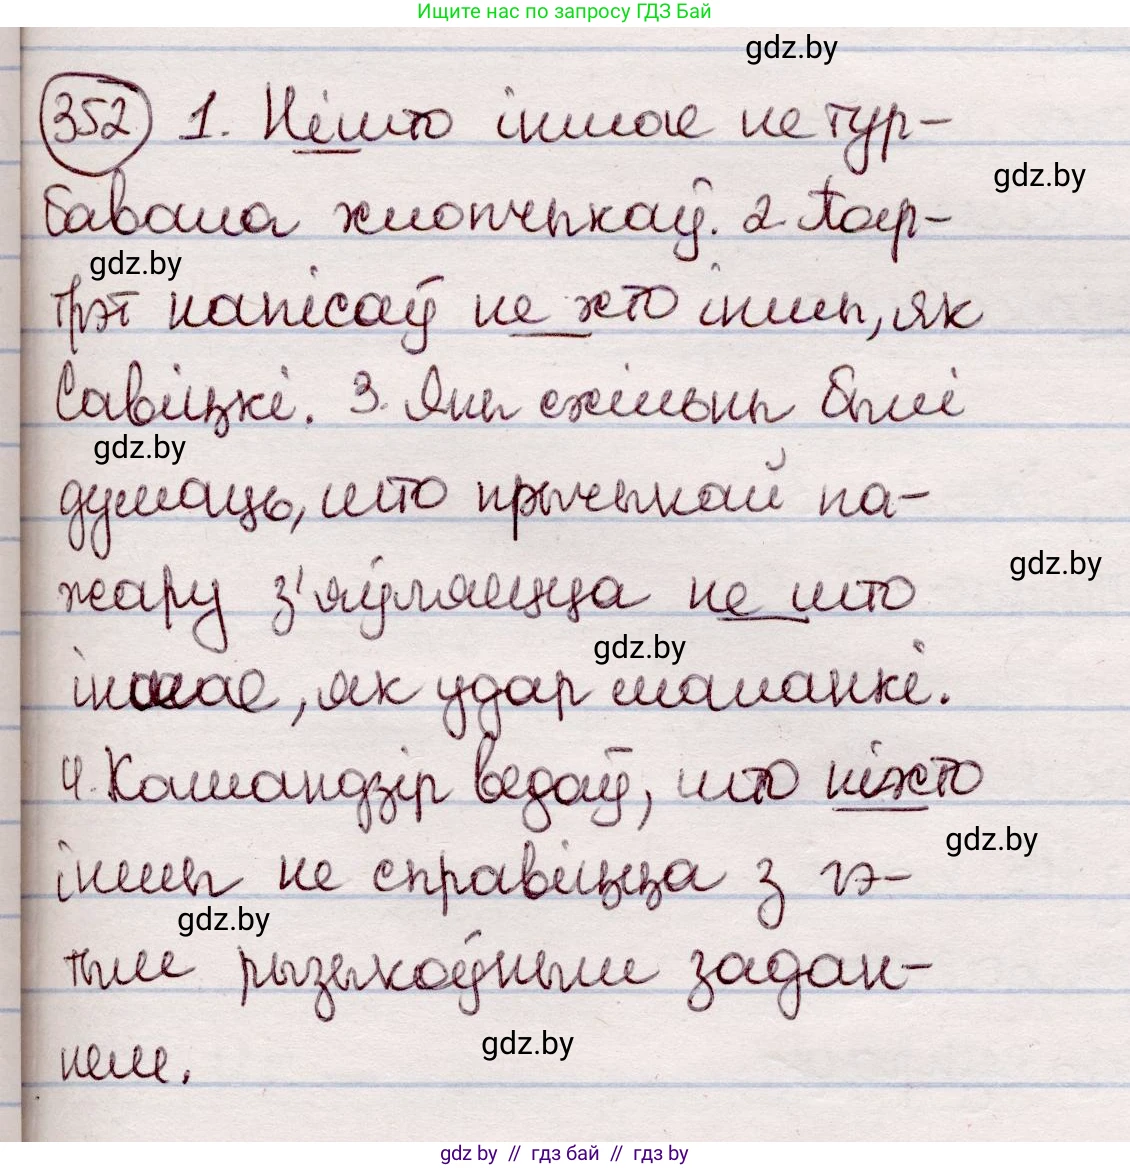 Ищите нас по запросу ГДЗ Бай
gdz.by
352 1. Нішто іншае не тур-
gdz.by
бавала хлопчыкаў. 2. Пар-
gdz.by
трэт напісаў не хто іншы, як
Савіцкі. 3. Яны схільны былі
gdz.by
думаць, што прычынай па-
gdz.by
жару з'яўляецца не што
gdz.by
іншае, як удар маланкі.
4. Камандзір ведаў, што ніхто
gdz.by
іншы не справіцца з гэ-
gdz.by
тым рызыкоўным задан-
gdz.by
нем.
gdz by // гдз бай // гдз by